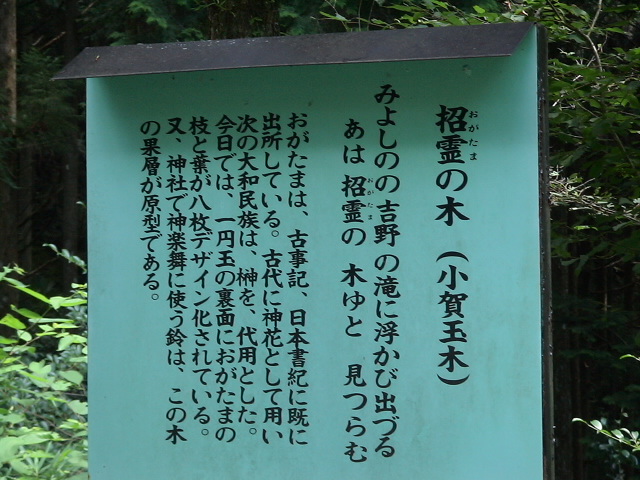 招霊の木（小賀玉木）
おがたま
みよしのの 吉野の滝に浮かび出づる
あは 招霊の 木ゆと 見つらむ
おがたま
おがたまは、古事記、日本書紀に既に
出所している。古代に神花として用い
次の大和民族は、榊を、代用とした。
今日では、一円玉の裏面におがたまの
枝と葉が八枚デザイン化されている。
又、神社で神楽舞に使う鈴は、この木
の果層が原型である。